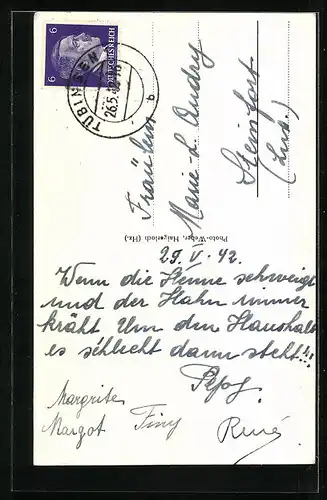 6 6
DEUTSCHES REICH
TÜBINGEN
26.5.42
b
Fräulein
Marie-L. Oudry
Steinfort
(Lux.)
Photo-Weber, Haigerloch (Hz.)
25. V. 42.
Wenn die Henne schweigt
und der Hahn immer
kräht Um den Haushalt
es schlecht dann steht!!
Pepy.
Margrite
Margot Finy
René